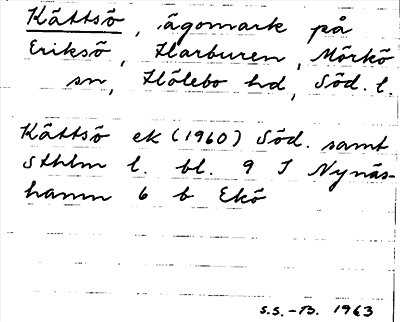 Kättsö, ägomark på
Eriksö, Harburen, Mörkö
sn, Hölebo hd, Söd. l.
Kättsö ek (1960) Söd. samt
Sthlm l. bl. 9 I Nynäs-
hamn 6 b Ekö
S.S.-B. 1963